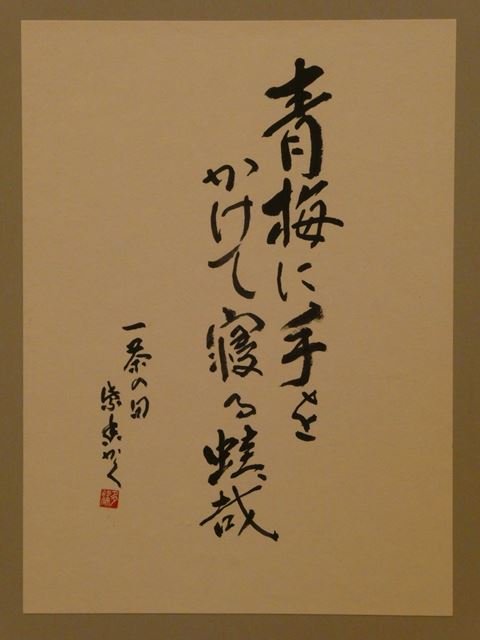 青梅に手を
かけて寝る蛙哉
一茶の句
かく